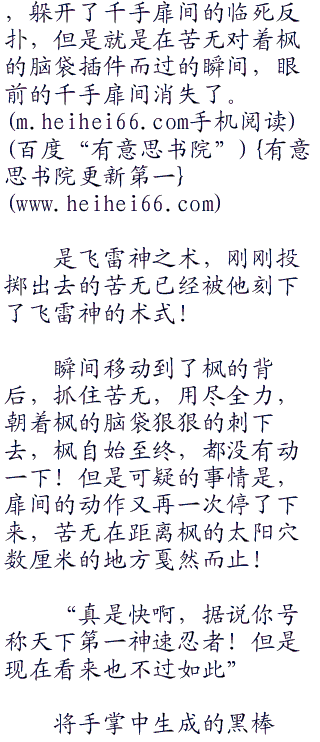 ，躲开了千手扉间的临死反
扑，但是就是在苦无对着枫
的脑袋插件而过的瞬间，眼
前的千手扉间消失了。
(m.heihei66.com手机阅读)
(百度“有意思书院”) {有意
思书院更新第一}
(www.heihei66.com)
是飞雷神之术，刚刚投
掷出去的苦无已经被他刻下
了飞雷神的术式！
瞬间移动到了枫的背
后，抓住苦无，用尽全力，
朝着枫的脑袋狠狠的刺下
去，枫自始至终，都没有动
一下！但是可疑的事情是，
扉间的动作又再一次停了下
来，苦无在距离枫的太阳穴
数厘米的地方戛然而止！
“真是快啊，据说你号
称天下第一神速忍者！但是
现在看来也不过如此”
将手掌中生成的黑棒